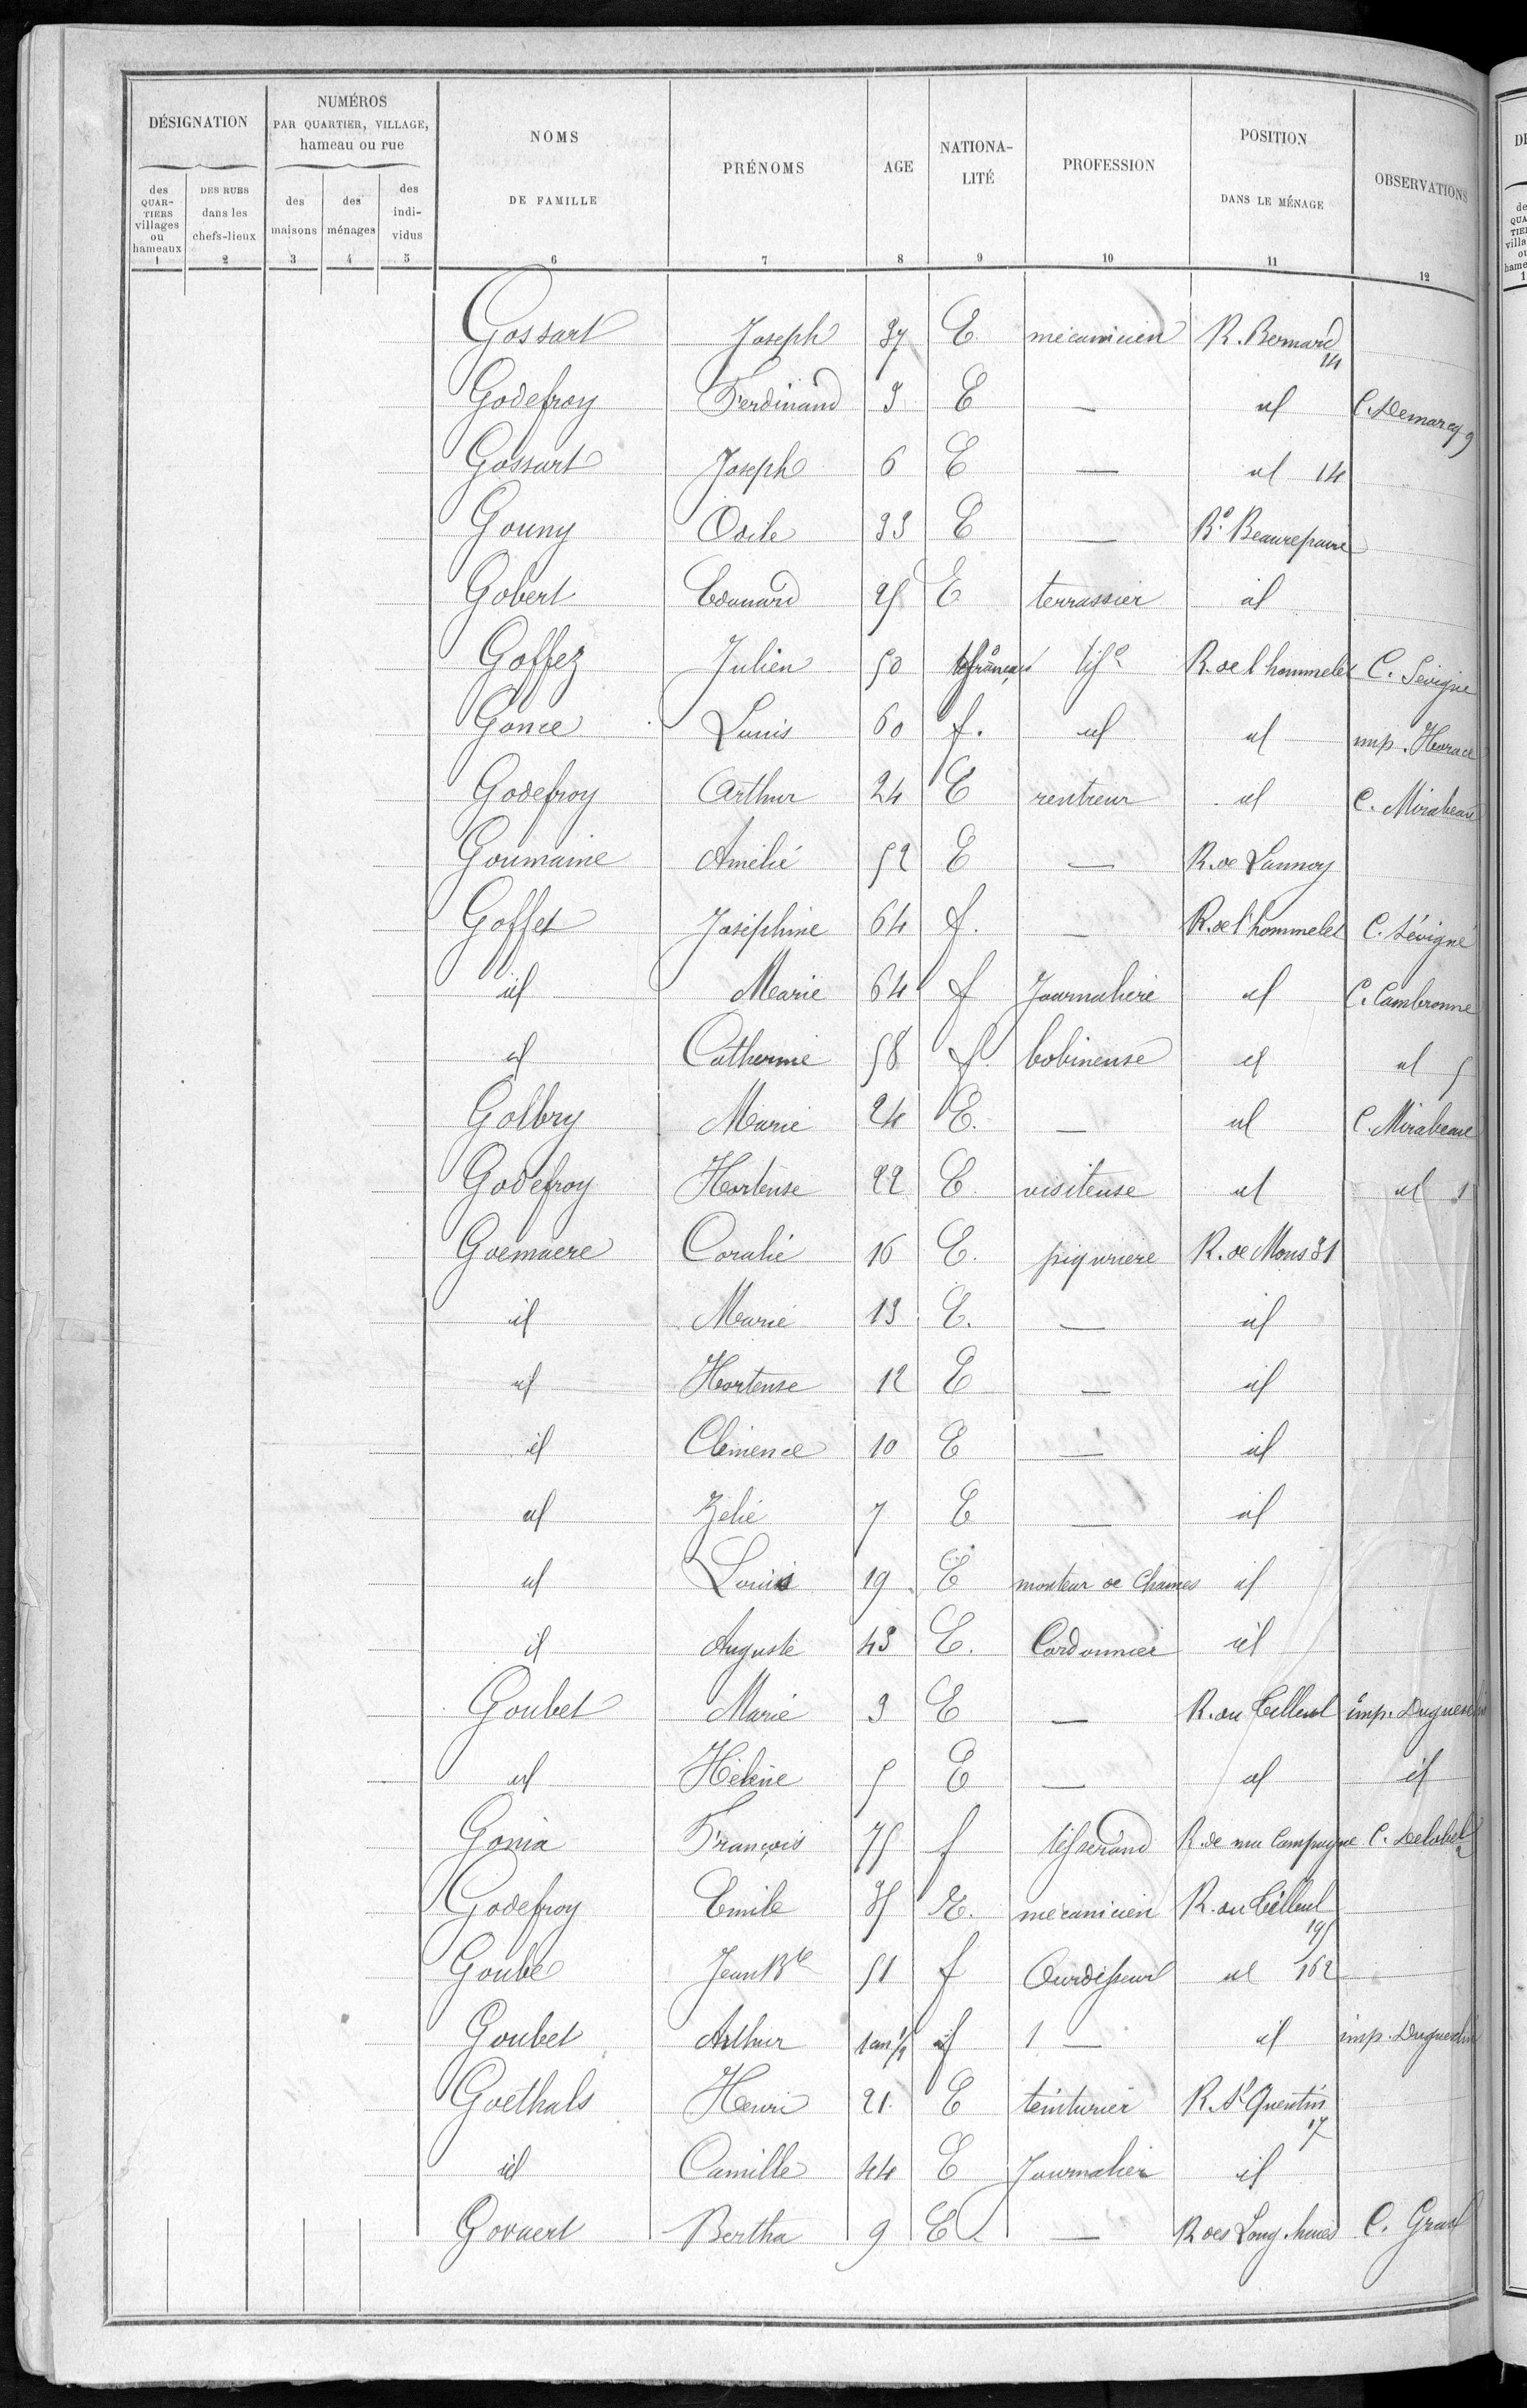 DÉSIGNATION
NUMÉROS
PAR QUARTIER, VILLAGE,
hameau ou rue
NOMS
DE FAMILLE
PRÉNOMS
AGE
NATIONA-
LITÉ
PROFESSION
POSITION
DANS LE MÉNAGE
OBSERVATIONS
des
QUAR-
TIERS
villages
ou
hameaux
DES RUES
dans les
chefs-lieux
des
maisons
des
ménages
des
indi-
vidus
1 2 3 4 5 6 7 8 9 10 11 12
Gossart Joseph 37 E. mécanicien R. Bernard 14
Godefroy Ferdinand 3 E — id C. Demarcq 9
Gossart Joseph 6 E — id 14
Gouny Odile 33 E — Bd Beaurepaire
Gobert Edouard 25 E terrassier id
Goffez Julien 50 français tisd R. de l'hommelet C. Sévigné
Gonce Louis 60 f. id id imp. Horace
Godefroy Arthur 24 E rentreur id C. Mirabeau
Goumaine Amélie 52 E — R. de Lannoy
Goffet Joséphine 64 f. — R. de l'hommelet C. Sévigné
id Marie 64 f Journalière id C. Cambronne
id Catherine 58 f. bobineuse id id 5
Golbry Marie 24 E. — id C. Mirabeau
Godefroy Hortense 22 E. visiteuse id id 1
Goemaere Coralie 16 E. piqurière R. de Mons 31
id Marie 13 E. — id
id Hortense 12 E — id
id Clémence 10 E — id
id Zélie 7 E — id
id Louis 19 E monteur de Chaines id
id Auguste 43 E. Cordonnier id
Goubet Marie 3 E — R. du Tilleul imp. Duguesclin
id Hélène 5 E — id id
Gonia François 75 f tisserand R. de ma Campagne C. Delobel 2
Godefroy Emile 35 E. mécanicien R. du Tilleul 195
Goube Jean Bte 51 f Ourdisseur id 162
Goubet Arthur 1 an 1/2 id 1 — id imp. Duguesclin
Goethals Henri 21 E teinturier R. St Quentin 17
id Camille 44 E Journalier id
Govaert Bertha 9 E. — R des Long. haies C. Graf